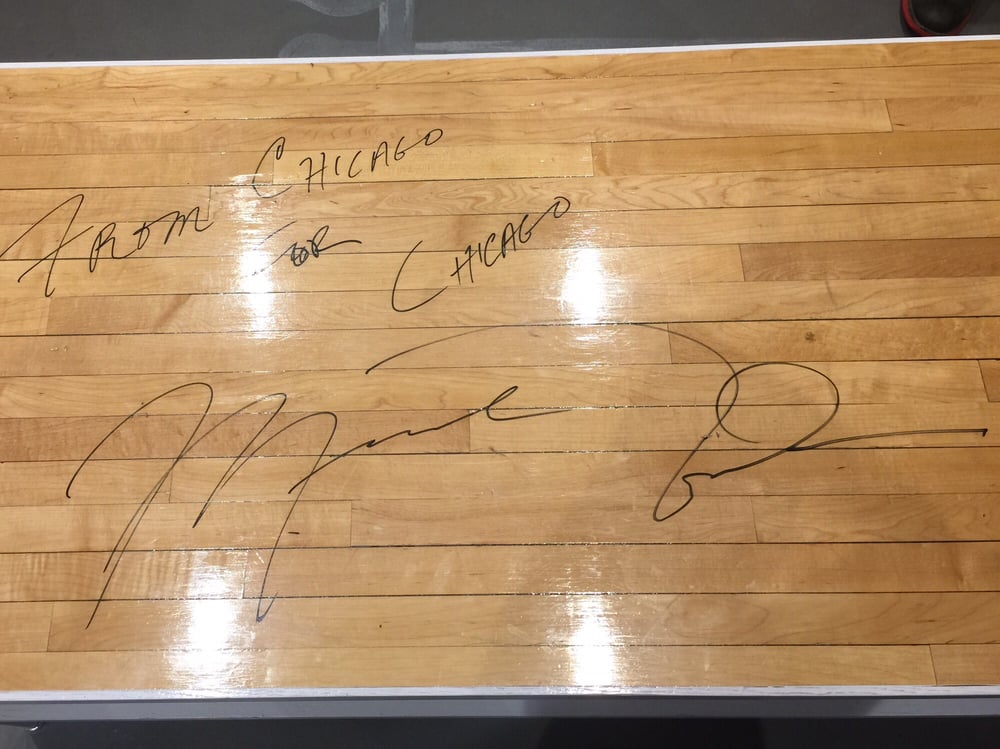 FROM CHICAGO
FOR CHICAGO